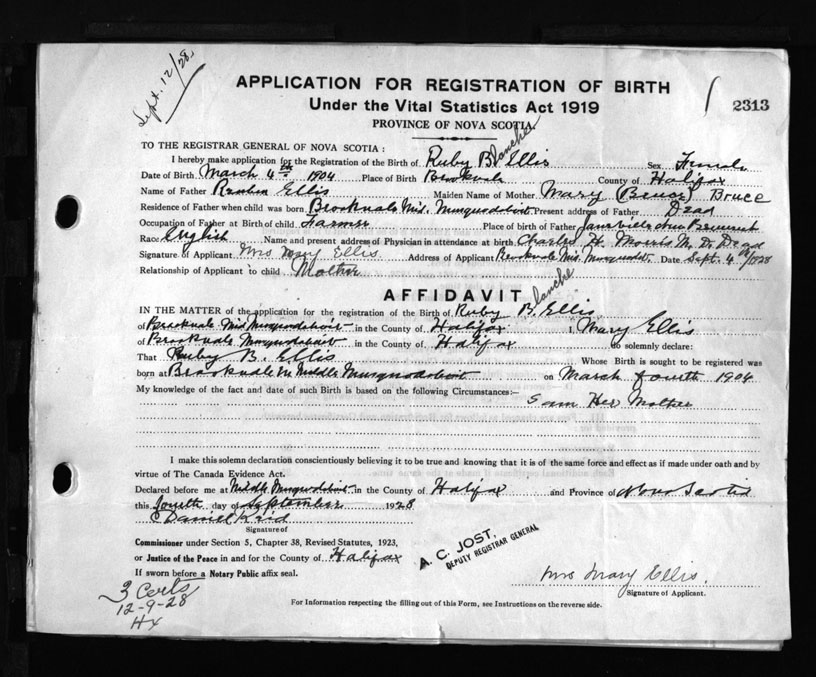 Sept. 12/28.
APPLICATION FOR REGISTRATION OF BIRTH
Under the Vital Statistics Act 1919
2313
PROVINCE OF NOVA SCOTIA.
TO THE REGISTRAR GENERAL OF NOVA SCOTIA :
I hereby make application for the Registration of the Birth of Ruby Blanche Ellis Sex Female
Date of Birth March 4th 1904 Place of Birth Brookvale County of Halifax
Name of Father Ellis Maiden Name of Mother Mary (Bruce) Bruce
Residence of Father when child was born Brookvale Mid. Musquodoboit Present address of Father Dead
Occupation of Father at Birth of child Farmer Place of birth of Father
Race English Name and present address of Physician in attendance at birth Charles H. Morris M. D. Dead
Signature of Applicant Mrs Mary Ellis Address of Applicant Brookvale Mid. Musquodt. Date Sept. 4th/1928
Relationship of Applicant to child Mother
AFFIDAVIT
IN THE MATTER of the application for the registration of the Birth of Ruby Blanche Ellis
of Brookvale Mid Musquodoboit in the County of Halifax I, Mary Ellis
of Brookvale Musquodoboit in the County of Halifax do solemnly declare:
That Ruby B. Ellis Whose Birth is sought to be registered was
born at Brookvale Middle Musquodoboit on March fourth 1904
My knowledge of the fact and date of such Birth is based on the following Circumstances:—
I am Her Mother
I make this solemn declaration conscientiously believing it to be true and knowing that it is of the same force and effect as if made under oath and by
virtue of The Canada Evidence Act.
Declared before me at Middle Musquodoboit in the County of Halifax and Province of Nova Scotia
this fourth day of September 1928
Daniel Reid
Signature of
Commissioner under Section 5, Chapter 38, Revised Statutes, 1923,
or Justice of the Peace in and for the County of Halifax
If sworn before a Notary Public affix seal.
A. C. JOST.
DEPUTY REGISTRAR GENERAL
Mrs Mary Ellis.
Signature of Applicant.
3 Certs
12-9-28
Hx
For Information respecting the filling out of this Form, see Instructions on the reverse side.